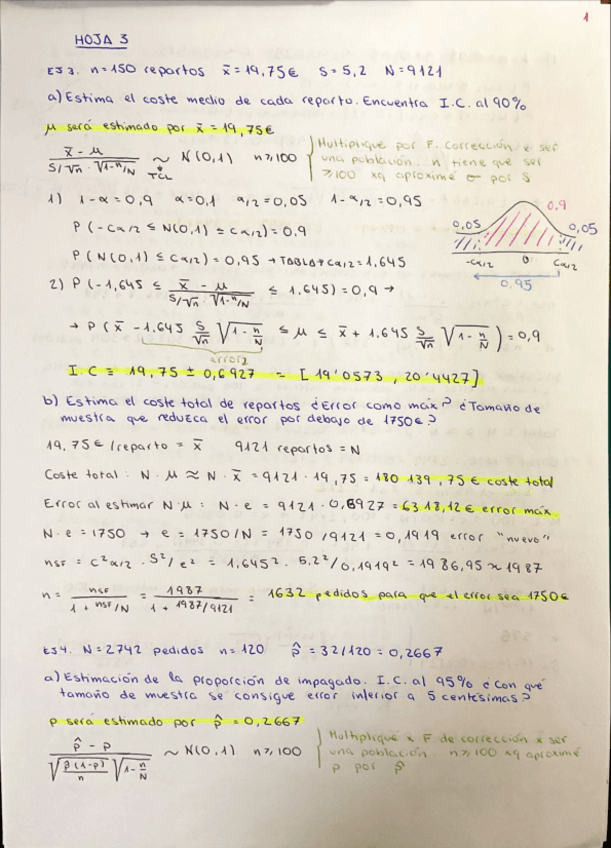 1
HOJA 3
EJ3. n=150 repartos x̄=19,75€ S=5,2 N=9121
a) Estima el coste medio de cada reparto. Encuentra I.C. al 90%
μ será estimado por x̄=19,75€
(x̄ - μ)/(S/√n · √(1-n/N)) ~ N(0,1) n≥100
TCL
Multipliqué por F. corrección x ser
una población... n tiene que ser
≥100 xq aproximé σ por S
1) 1-α=0,9 α=0,1 α/2=0,05 1-α/2=0,95
P(-Cα/2 ≤ N(0,1) ≤ Cα/2)=0,9
P(N(0,1) ≤ Cα/2)=0,95 → TABLA → Cα/2=1,645
0,9
0,05
0,05
-Cα/2 0 Cα/2
0,95
2) P(-1,645 ≤ (x̄ - μ)/(S/√n · √(1-n/N)) ≤ 1,645)=0,9 →
→ P(x̄ - 1,645 S/√n √(1-n/N) ≤ μ ≤ x̄ + 1,645 S/√n √(1-n/N))=0,9
error
I.C ≡ 19,75 ± 0,6927 = [19'0573, 20'4427]
b) Estima el coste total de repartos ¿Error como máx? ¿Tamaño de
muestra que reduzca el error por debajo de 1750€?
19,75€/reparto = x̄ 9121 repartos = N
Coste total: N·μ ≈ N·x̄ = 9121·19,75 = 180 139,75€ coste total
Error al estimar N·μ: N·e = 9121·0,6927 = 6318,12€ error máx.
N·e = 1750 → e = 1750/N = 1750/9121 = 0,1919 error "nuevo"
nSF = C²α/2 · S²/e² = 1,645² · 5,2²/0,1919² = 1986,95 ≈ 1987
n = nSF/(1 + nSF/N) = 1987/(1 + 1987/9121) = 1632 pedidos para que el error sea 1750€
EJ4. N=2742 pedidos n=120 p̂=32/120=0,2667
a) Estimación de la proporción de impagado. I.C. al 95% ¿Con qué
tamaño de muestra se consigue error inferior a 5 centésimas?
p será estimado por p̂=0,2667
(p̂ - p)/(√(p̂(1-p̂)/n) √(1-n/N)) ~ N(0,1) n≥100
Multipliqué x F. de corrección x ser
una población... n≥100 xq aproximé
p por p̂